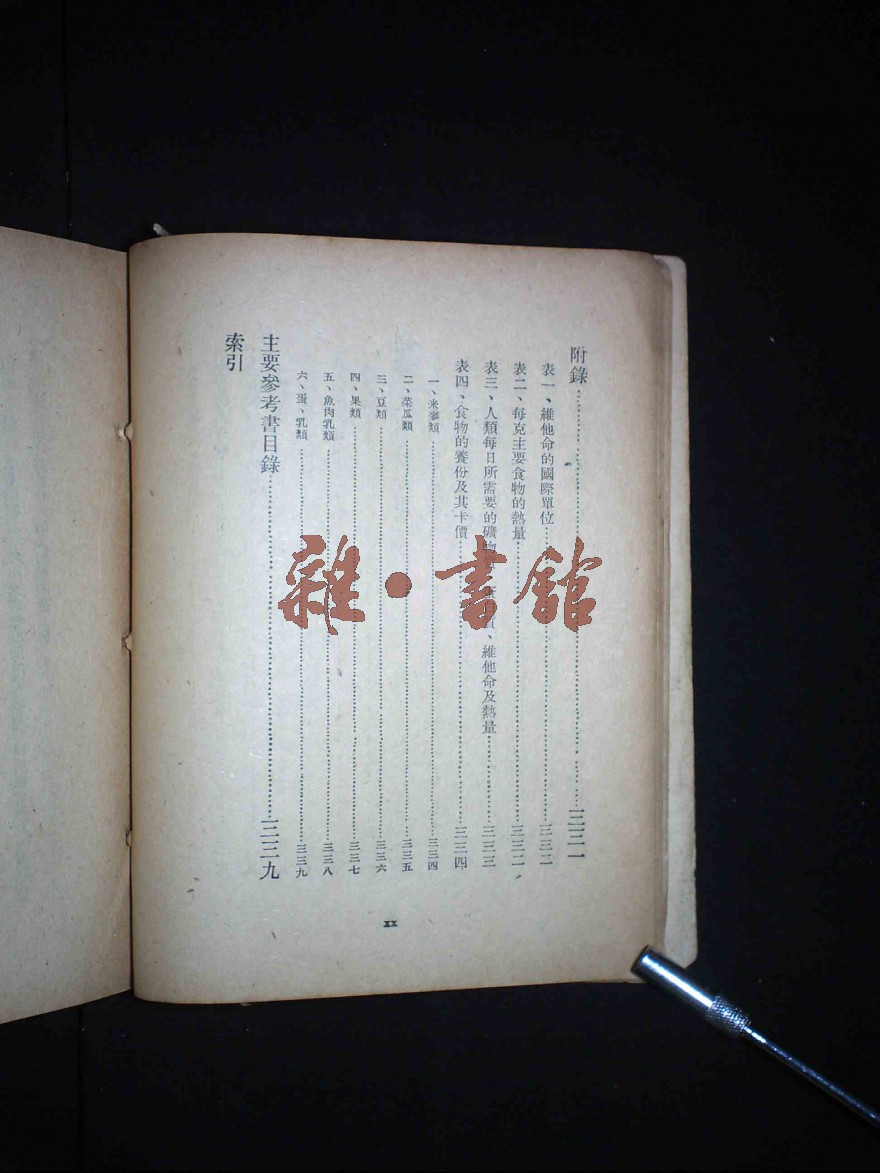 附錄……三三一
表一、維他命的國際單位……三三二
表二、每克主要食物的熱量……三三二
表三、人類每日所需要的礦物 質、維他命及熱量……三三三
表四、食物的養份及其卡價……三三四
一、米麥類……三三四
二、菜瓜類……三三五
三、豆類……三三六
四、果類……三三七
五、魚肉乳類……三三八
六、蛋、乳類……三三九
主要參考書目錄……三三九
索引
雜·書館